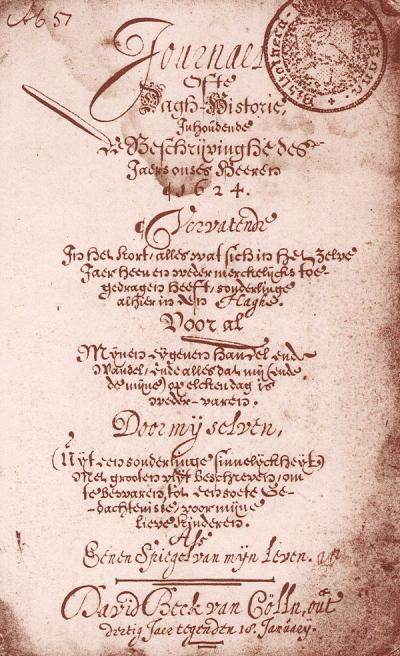 Ab 51
Journael
Ofte
Dagh-Historie,
Inhoudende
de Beschrijvinghe des
Jaers onses Heeren
1624.
Vervatende
In het kort, alles wat sich in het zelve
Jaer heen en weder merckelijcks toe-
gedragen heeft, sonderlinge
alhier in den Haghe.
Voor al
Mijnen eygenen handel ende
Wandel, ende alles dat mij (ende
de mijne) op elcken dag is
weder-varen.
Door my selven,
(Uyt een sonderlinge sinnelyckheyt)
Met grooten vlijt beschreven, om
te bewaren, tot een soete Ge-
dachtenisse, voor mijne
lieve kinderen.
Als
Eenen Spiegel van mijn Leven.
David Beck van Cölln, out
dertig Jaer tegen den 18. January.